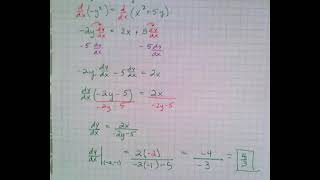 d/dx (-y²) = d/dx (x² + 5y)
-2y dy/dx = 2x + 5 dy/dx
-5 dy/dx -5 dy/dx
-2y dy/dx - 5 dy/dx = 2x
dy/dx (-2y - 5) = 2x
-2y - 5 -2y - 5
dy/dx = 2x / -2y - 5
dy/dx | (-2,-1) = 2(-2) / -2(-1) - 5 = -4 / -3 = 4/3